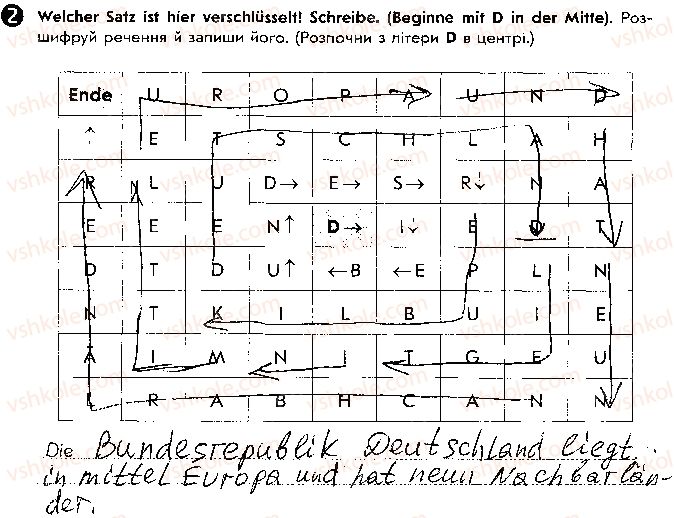 2 Welcher Satz ist hier verschlüsselt! Schreibe. (Beginne mit D in der Mitte). Роз-
шифруй речення й запиши його. (Розпочни з літери D в центрі.)
Ende U R O P A U N D
↑ E T S C H L A H
R N L U D→ E→ S→ R↓ N A
E E E N↑ D→ I↓ E D T
D T D U↑ ←B ←E P L N
N T K I L B U I E
Ä I M N I T G E U
L R A B H C A N N
Die Bundesrepublik Deutschland liegt
in mittel Europa und hat neun Nachbarlän-
der.